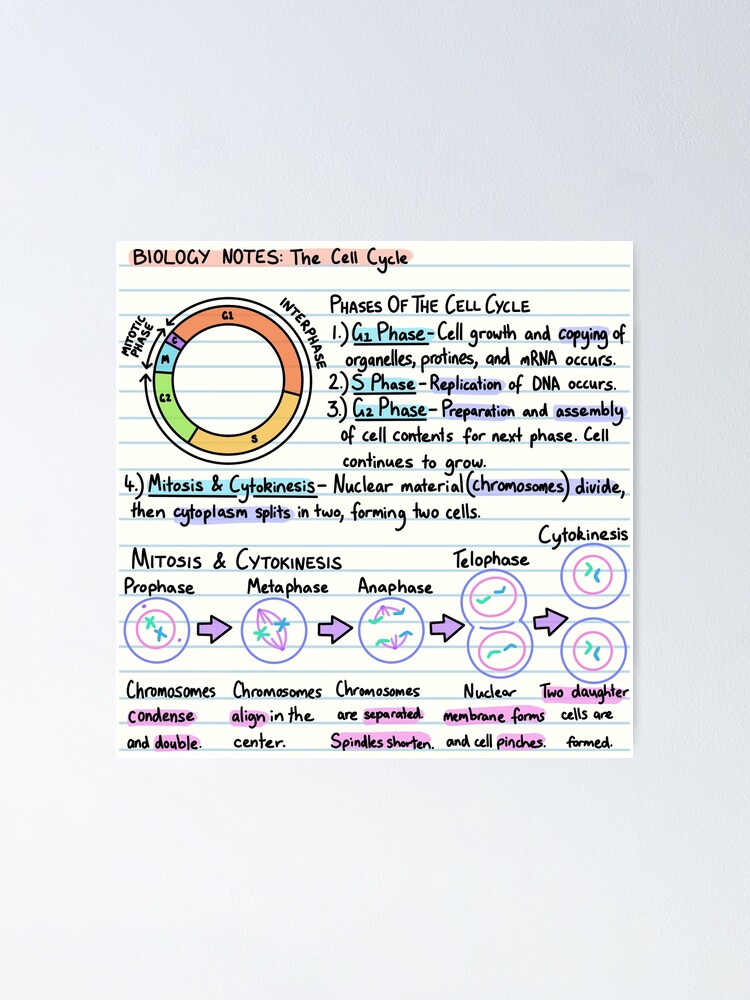 BIOLOGY NOTES: The Cell Cycle
PHASES OF THE CELL CYCLE
MITOTIC PHASE
INTERPHASE
G1
C
M
G2
S
1.) G1 Phase - Cell growth and copying of
organelles, protines, and mRNA occurs.
2.) S Phase - Replication of DNA occurs.
3.) G2 Phase - Preparation and assembly
of cell contents for next phase. Cell
continues to grow.
4.) Mitosis & Cytokinesis - Nuclear material (chromosomes) divide,
then cytoplasm splits in two, forming two cells.
MITOSIS & CYTOKINESIS
Prophase
Metaphase
Anaphase
Telophase
Cytokinesis
Chromosomes
condense
and double.
Chromosomes
align in the
center.
Chromosomes
are separated.
Spindles shorten.
Nuclear
membrane forms
and cell pinches.
Two daughter
cells are
formed.